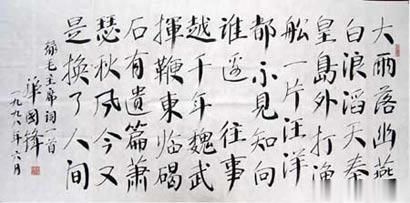 大雨落幽燕
白浪滔天秦
皇島外打渔
舩一片汪洋
都不見知向
誰邊往事
越千年魏武
揮鞭東临碣
石有遺篇萧
瑟秋风今又
是换了人间
録毛主席词一首
華國锋
一九九八年六月